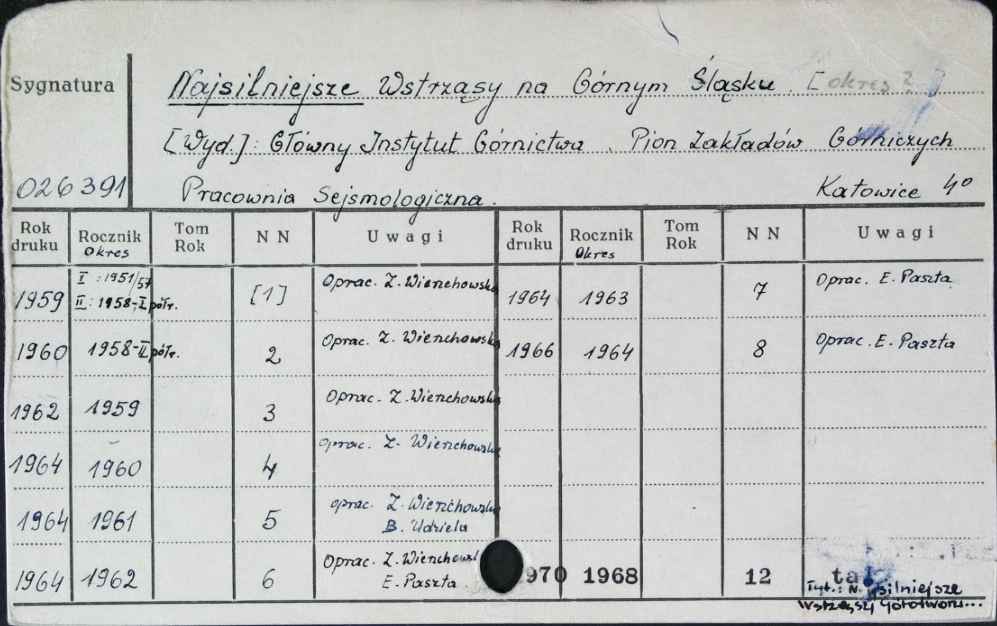 Sygnatura
Najsilniejsze Wstrząsy na Górnym Śląsku. [okres ? ]
[Wyd.]: Główny Instytut Górnictwa. Pion Zakładów Górniczych
026391 Pracownia Sejsmologiczna. Katowice 4°
Rok druku Rocznik Okres Tom Rok NN Uwagi Rok druku Rocznik Okres Tom Rok NN Uwagi
1959 I : 1951/57 II : 1958-I półr. [1] Oprac. Z. Wierzchowska 1964 1963 7 Oprac. E. Paszta
1960 1958-II półr. 2 Oprac. Z. Wierzchowska 1966 1964 8 Oprac. E. Paszta
1962 1959 3 Oprac. Z. Wierzchowska
1964 1960 4 oprac. Z. Wierzchowska
1964 1961 5 oprac. Z. Wierzchowska
B. Udziela
1964 1962 6 Oprac. Z. Wierzchows
E. Paszta 970 1968 12
Tyt.: Najsilniejsze
Wstrząsy Górotworu...